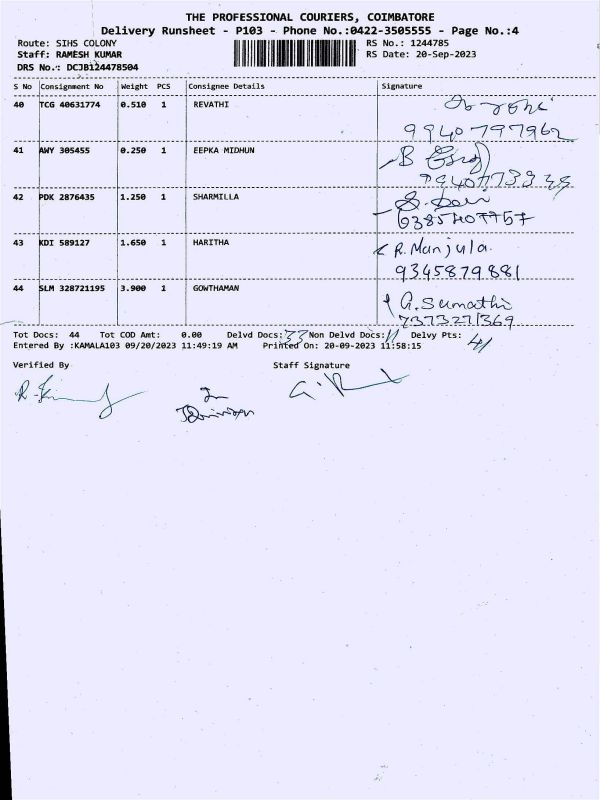 THE PROFESSIONAL COURIERS, COIMBATORE
Delivery Runsheet - P103 - Phone No.:0422-3505555 - Page No.:4
Route: SIHS COLONY RS No.: 1244785
Staff: RAMESH KUMAR RS Date: 20-Sep-2023
DRS No.: DCJB124478504
S No Consignment No Weight PCS Consignee Details Signature
40 TCG 40631774 0.510 1 REVATHI
9940797962
41 AWY 305455 0.250 1 EEPKA MIDHUN B
42 PDK 2876435 1.250 1 SHARMILLA
6385407757
43 KDI 589127 1.650 1 HARITHA R. Manjula.
9345879881
44 SLM 328721195 3.900 1 GOWTHAMAN G. Sumathi
7373271369
Tot Docs: 44 Tot COD Amt: 0.00 Delvd Docs: 33 Non Delvd Docs: 11 Delvy Pts: 41
Entered By :KAMALA103 09/20/2023 11:49:19 AM Printed On: 20-09-2023 11:58:15
Verified By Staff Signature